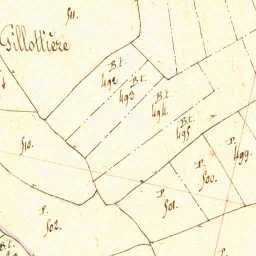 511.
Gillottière
B.t.
492
B.t.
493
B.t.
494
B.t.
495
P.
499.
P.
500.
P.
501.
510.
P.
502.
B.t.